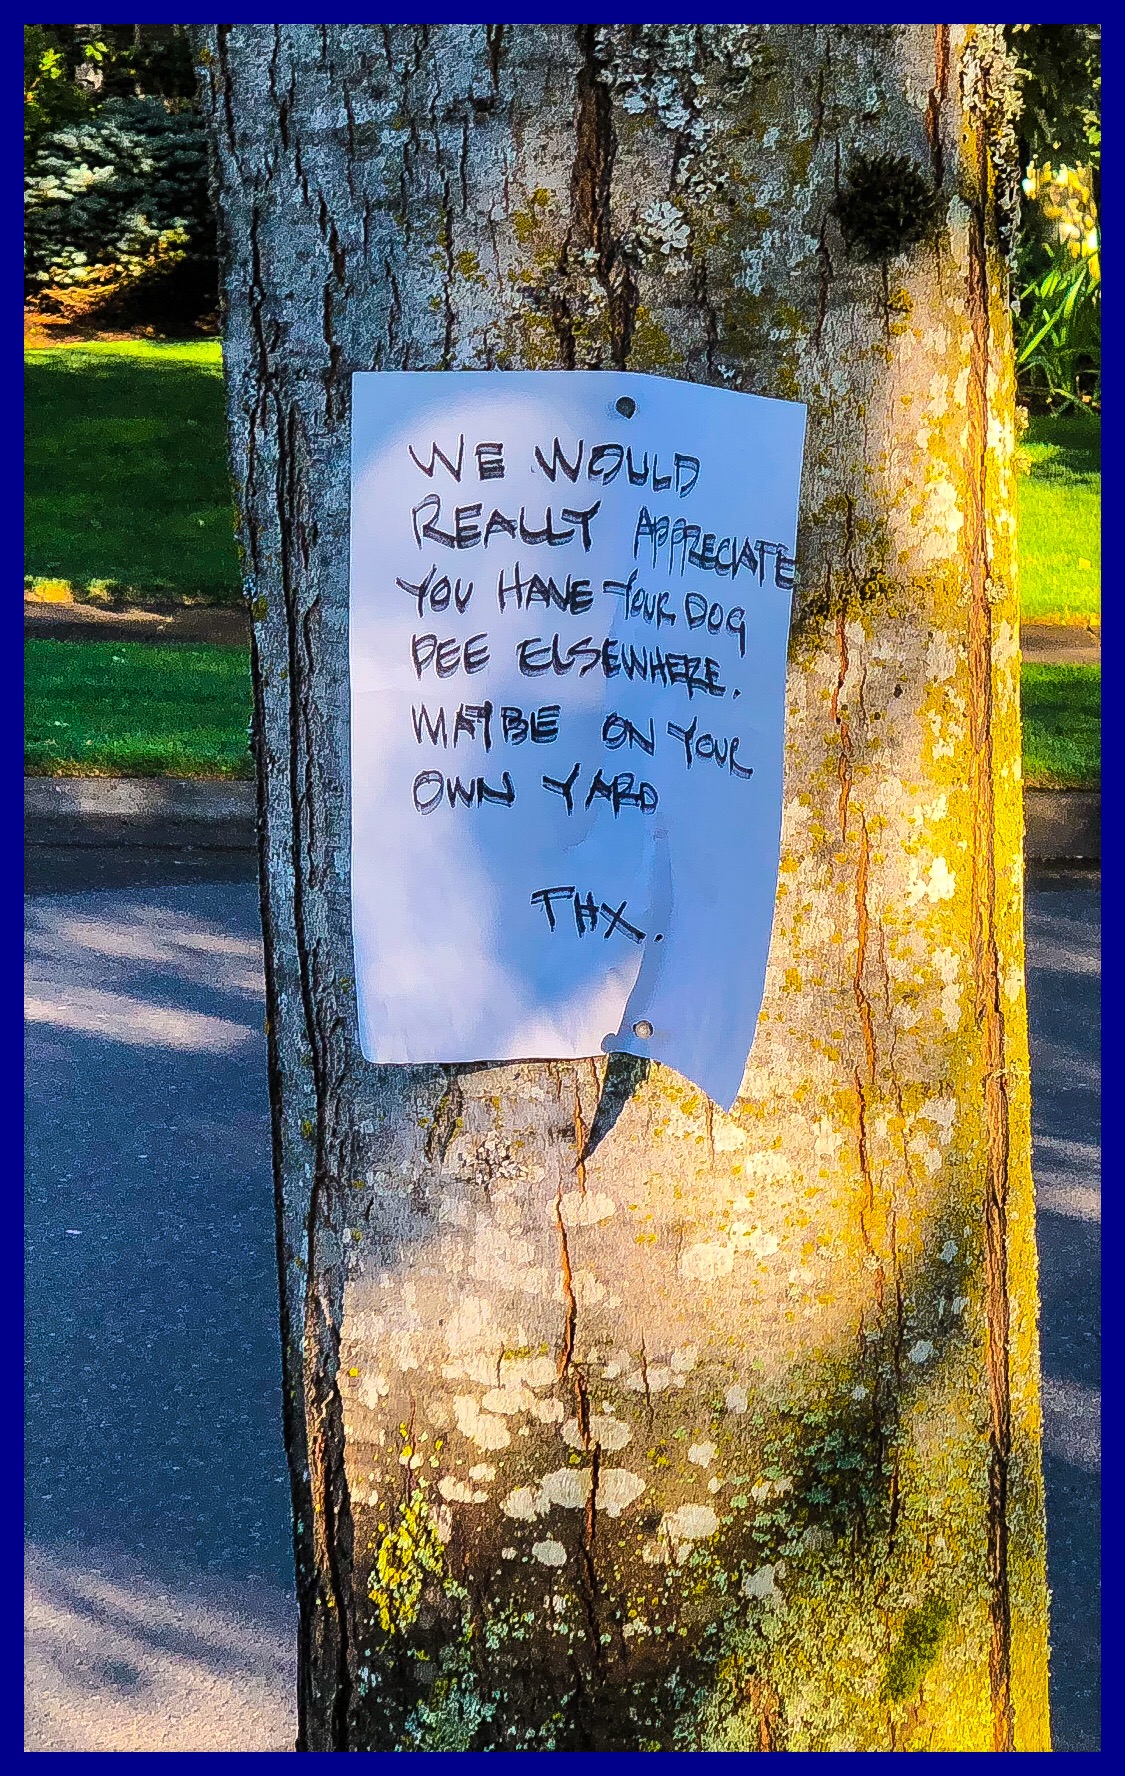 WE WOULD
REALLY APPRECIATE
YOU HAVE YOUR DOG
PEE ELSEWHERE.
MAYBE ON YOUR
OWN YARD
THX.